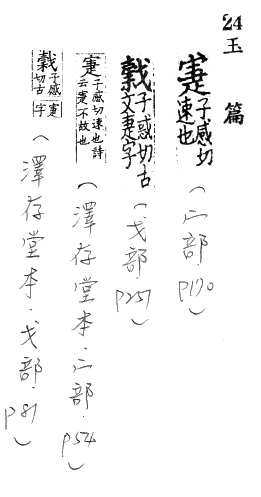 24玉篇
寁子感切速也(宀部.P170)
子感切古文寁字(戈部.P257)
寁子感切速也詩云寁不故也(澤存堂本.宀部.P54)
子感切古寁字(澤存堂本.戈部.P81)